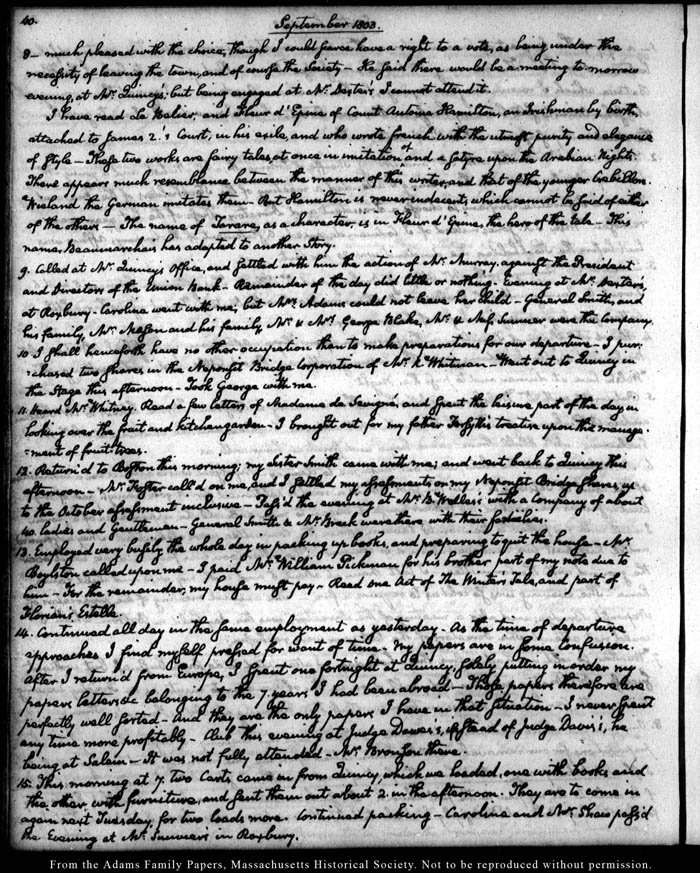 40.
September 1803.
8— much pleased with the choice, though I could scarce have a right to a vote, as being under the
necessity of leaving the town, and of course the Society — He said there would be a meeting to-morrow
evening, at Mr. Quincy's: but being engaged at Mr. Dexter's I cannot attend it.
I have read Le Belier, and Fleur d'Epine of Count Antoine Hamilton, an Irishman by birth,
attached to James 2.'s Court, in his exile, and who wrote french with the utmost purity and elegance
of style — These two works are fairy tales, at once in imitation of and a satyre upon the Arabian Nights.
There appears much resemblance between the manner of this writer, and that of the younger Crebillon.
Wieland the German imitates them — But Hamilton is never indecent, which cannot be said of either
of the others — The name of Tarare, as a character, is in Fleur d'Epine, the hero of the tale — This
name, Beaumarchais has adapted to another Story.
9. Called at Mr. Quincy's Office, and settled with him the action of Mr. Murray, against the President
and Directors of the Union Bank — Remainder of the day did little or nothing — Evening at Mr. Dexter's,
at Roxbury — Caroline went with me; but Mrs. Adams could not leave her child — General Smith, and
his family, Mr. Mason and his family, Mr. & Mrs. George Blake, Mr. & Miss Sumner were the company.
10. I shall henceforth have no other occupation than to make preparations for our departure — I pur-
-chased two shares in the Neponset Bridge Corporation of Mr. K. Whitman — Went out to Quincy in
the Stage this afternoon — Took George with me.
11. Heard Mr. Whitney. Read a few letters of Madame de Sevigné, and spent the leisure part of the day in
looking over the fruit and kitchen garden — I brought out for my father Forsyth's treatise upon the manage-
-ment of fruit trees.
12. Return'd to Boston this morning; my Sister Smith came with me; and went back to Quincy this
afternoon — Mr. Foster call'd on me, and I settled my assessments on my Neponset Bridge shares, up
to the October assessment inclusive — Pass'd the evening at Mr. B. Welles's with a company of about
40. ladies and Gentlemen — General Smith & Mr. Breck were there with their families.
13. Employed very busily the whole day in packing up books, and preparing to quit the house — Mr.
Boylston called upon me — I paid Mr. William Pickman for his brother part of my note due to
him — For the remainder, my house must pay — Read one Act of The Winter's Tale, and part of
Florian's Estelle.
14. Continued all day in the same employment as yesterday — As the time of departure
approaches I find myself pressed for want of time — My papers are in some confusion.
After I return'd from Europe, I spent one fortnight at Quincy, solely putting in order my
papers letters &c belonging to the 7. years I had been abroad — Those papers therefore are
perfectly well sorted — And they are the only papers I have in that situation — I never spent
any time more profitably — Club this evening at Judge Dawes's, instead of Judge Davis's, he
being at Salem — It was not fully attended — Mr. Bronson there.
15. This morning at 7. two Carts came in from Quincy, which we loaded, one with books and
the other with furniture, and sent them out about 2. in the afternoon. They are to come in
again next Tuesday, for two loads more. Continued packing — Caroline and Mr. Shaw pass'd
the Evening at Mr. Sumner's in Roxbury.
From the Adams Family Papers, Massachusetts Historical Society. Not to be reproduced without permission.